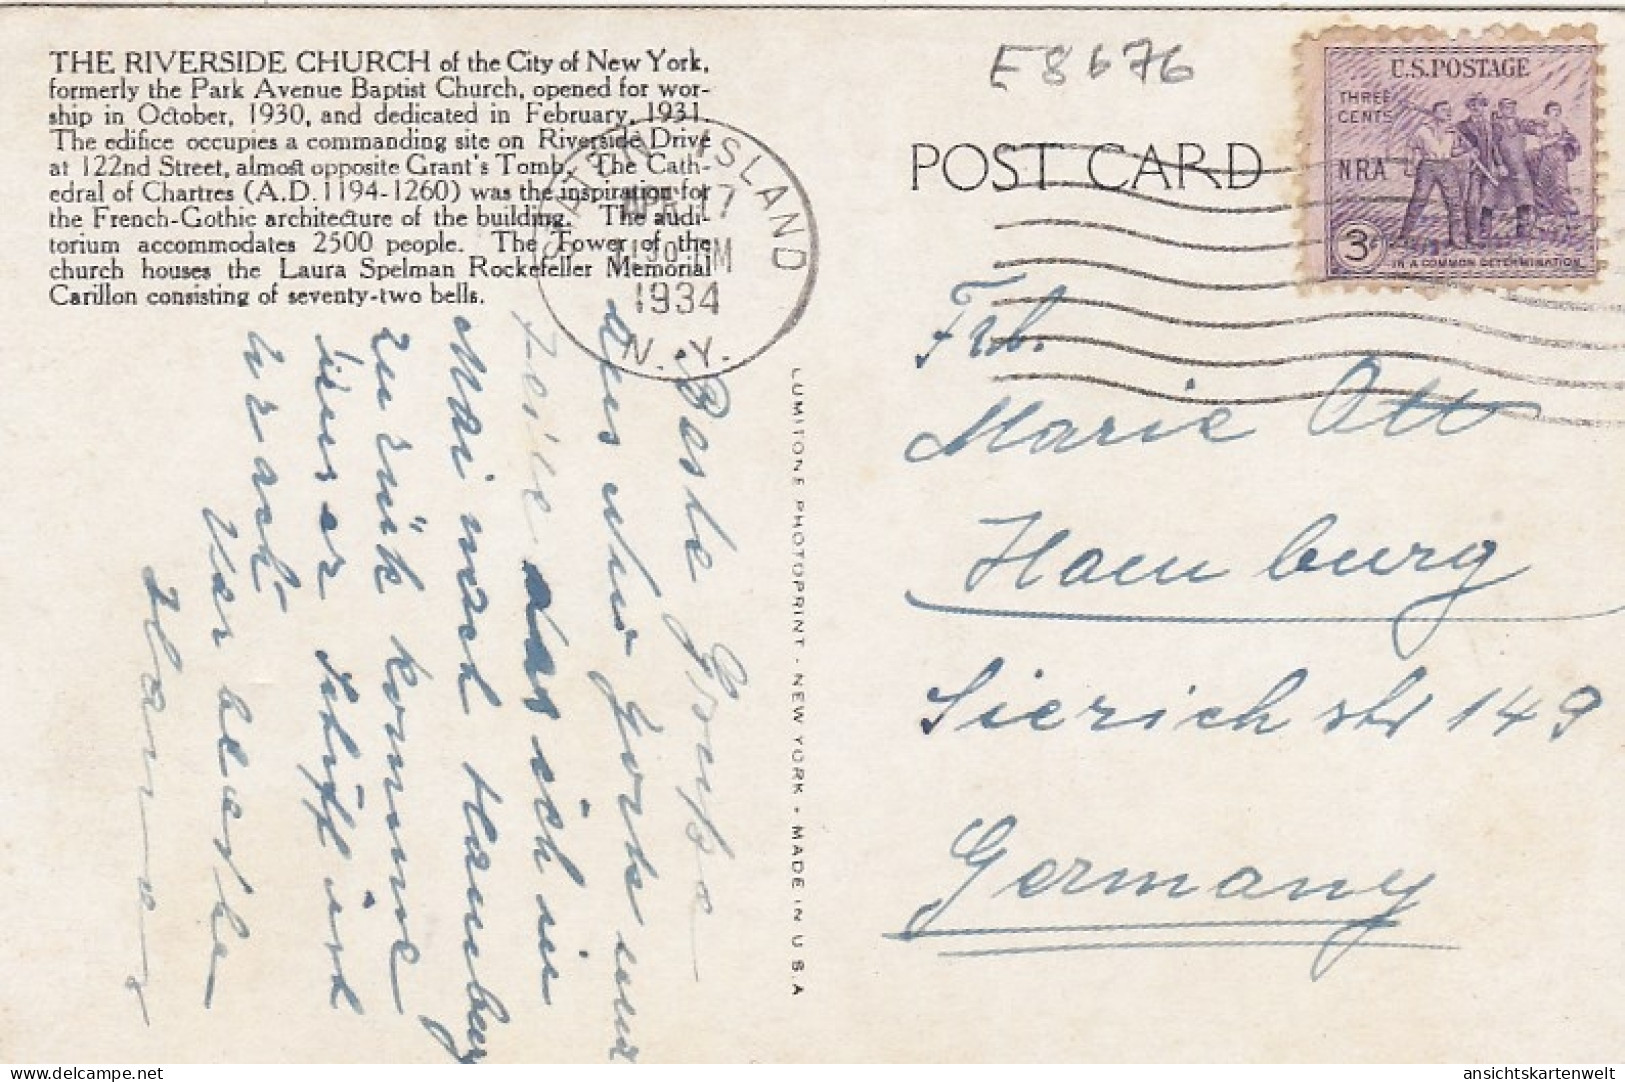 THE RIVERSIDE CHURCH of the City of New York,
formerly the Park Avenue Baptist Church, opened for wor-
ship in October, 1930, and dedicated in February, 1931.
The edifice occupies a commanding site on Riverside Drive
at 122nd Street, almost opposite Grant's Tomb. The Cath-
edral of Chartres (A.D. 1194-1260) was the inspiration for
the French-Gothic architecture of the building. The audi-
torium accommodates 2500 people. The Tower of the
church houses the Laura Spelman Rockefeller Memorial
Carillon consisting of seventy-two bells.
ISLAND
17
1934
N.Y.
E8676
POST CARD
U.S.POSTAGE
THREE
CENTS
NRA
3¢
IN A COMMON DETERMINATION
Beste Grüße
aus New York und
teile das ich in
Mai nach Hamburg
zurük komme
unser Schiff ist
LUMITONE PHOTOPRINT - NEW YORK • MADE IN U.S.A
Frl.
Marie Ott
Hamburg
Sierichstr 149
Germany
ansichtskartenwelt